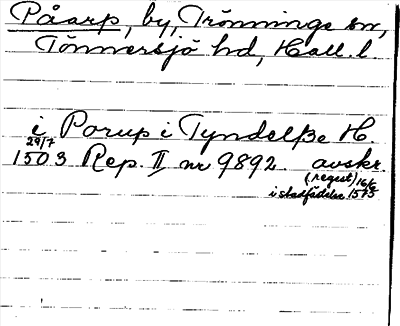 Påarp, by, Trönninge sn,
Tönnersjö hd, Hall. l.
i Porup i Tyndelsze H.
29/7
1503 Rep. II nr 9892. avskr.
(regest) 16/6
i stadfästelse 1575